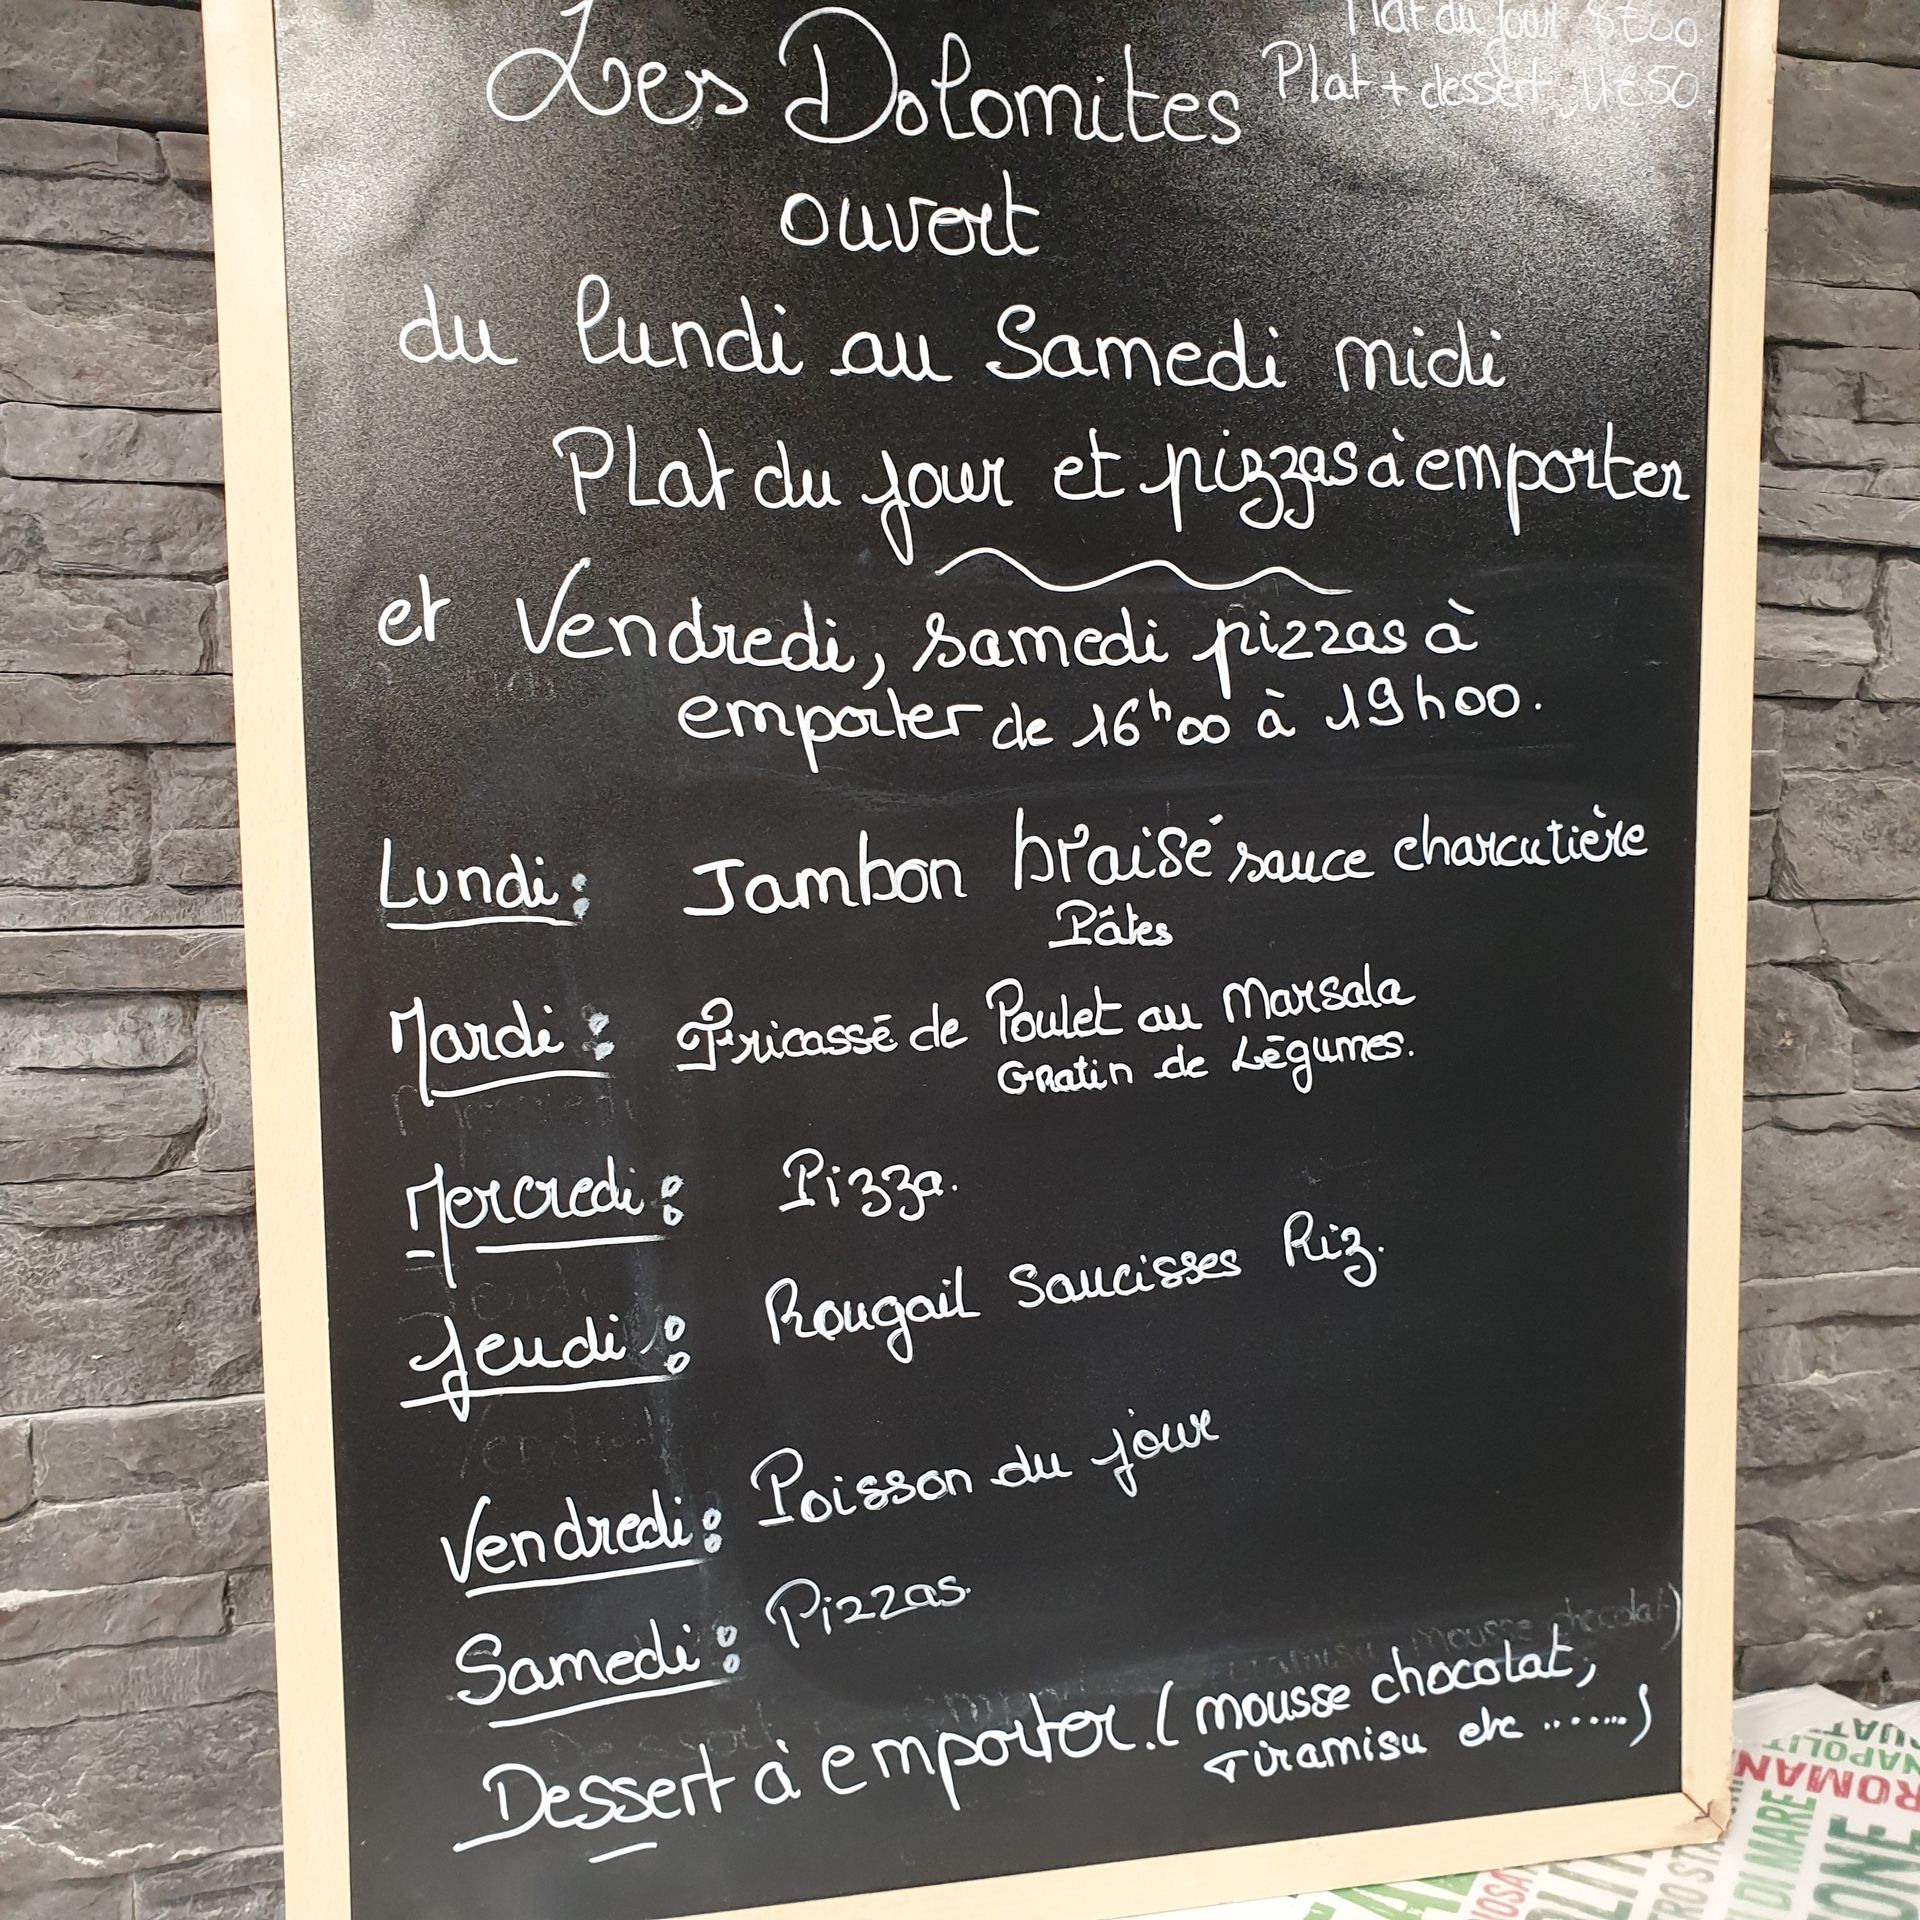 Plat du jour 8€00
Les Dolomites Plat + dessert 11€50
ouvert
du lundi au Samedi midi
Plat du jour et pizzas à emporter
et Vendredi, samedi pizzas à
emporter de 16h00 à 19h00.
Lundi: Jambon braisé sauce charcutière
Pâtes
Mardi: Fricassé de Poulet au Marsala
Gratin de Légumes.
Mercredi: Pizza.
Jeudi: Rougail Saucisses Riz.
Vendredi: Poisson du jour
Samedi: Pizzas.
mousse chocolat)
Dessert à emporter. (mousse chocolat,
Tiramisu etc .......)
NAPOLIT
ROMAN
DI MARE
IONE